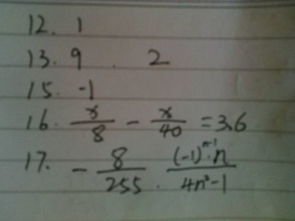 12. 1
13. 9 . 2
15. -1
16. x/8 - x/40 = 3.6
17. - 8/255 . (-1)^(n-1)·n/4n²-1